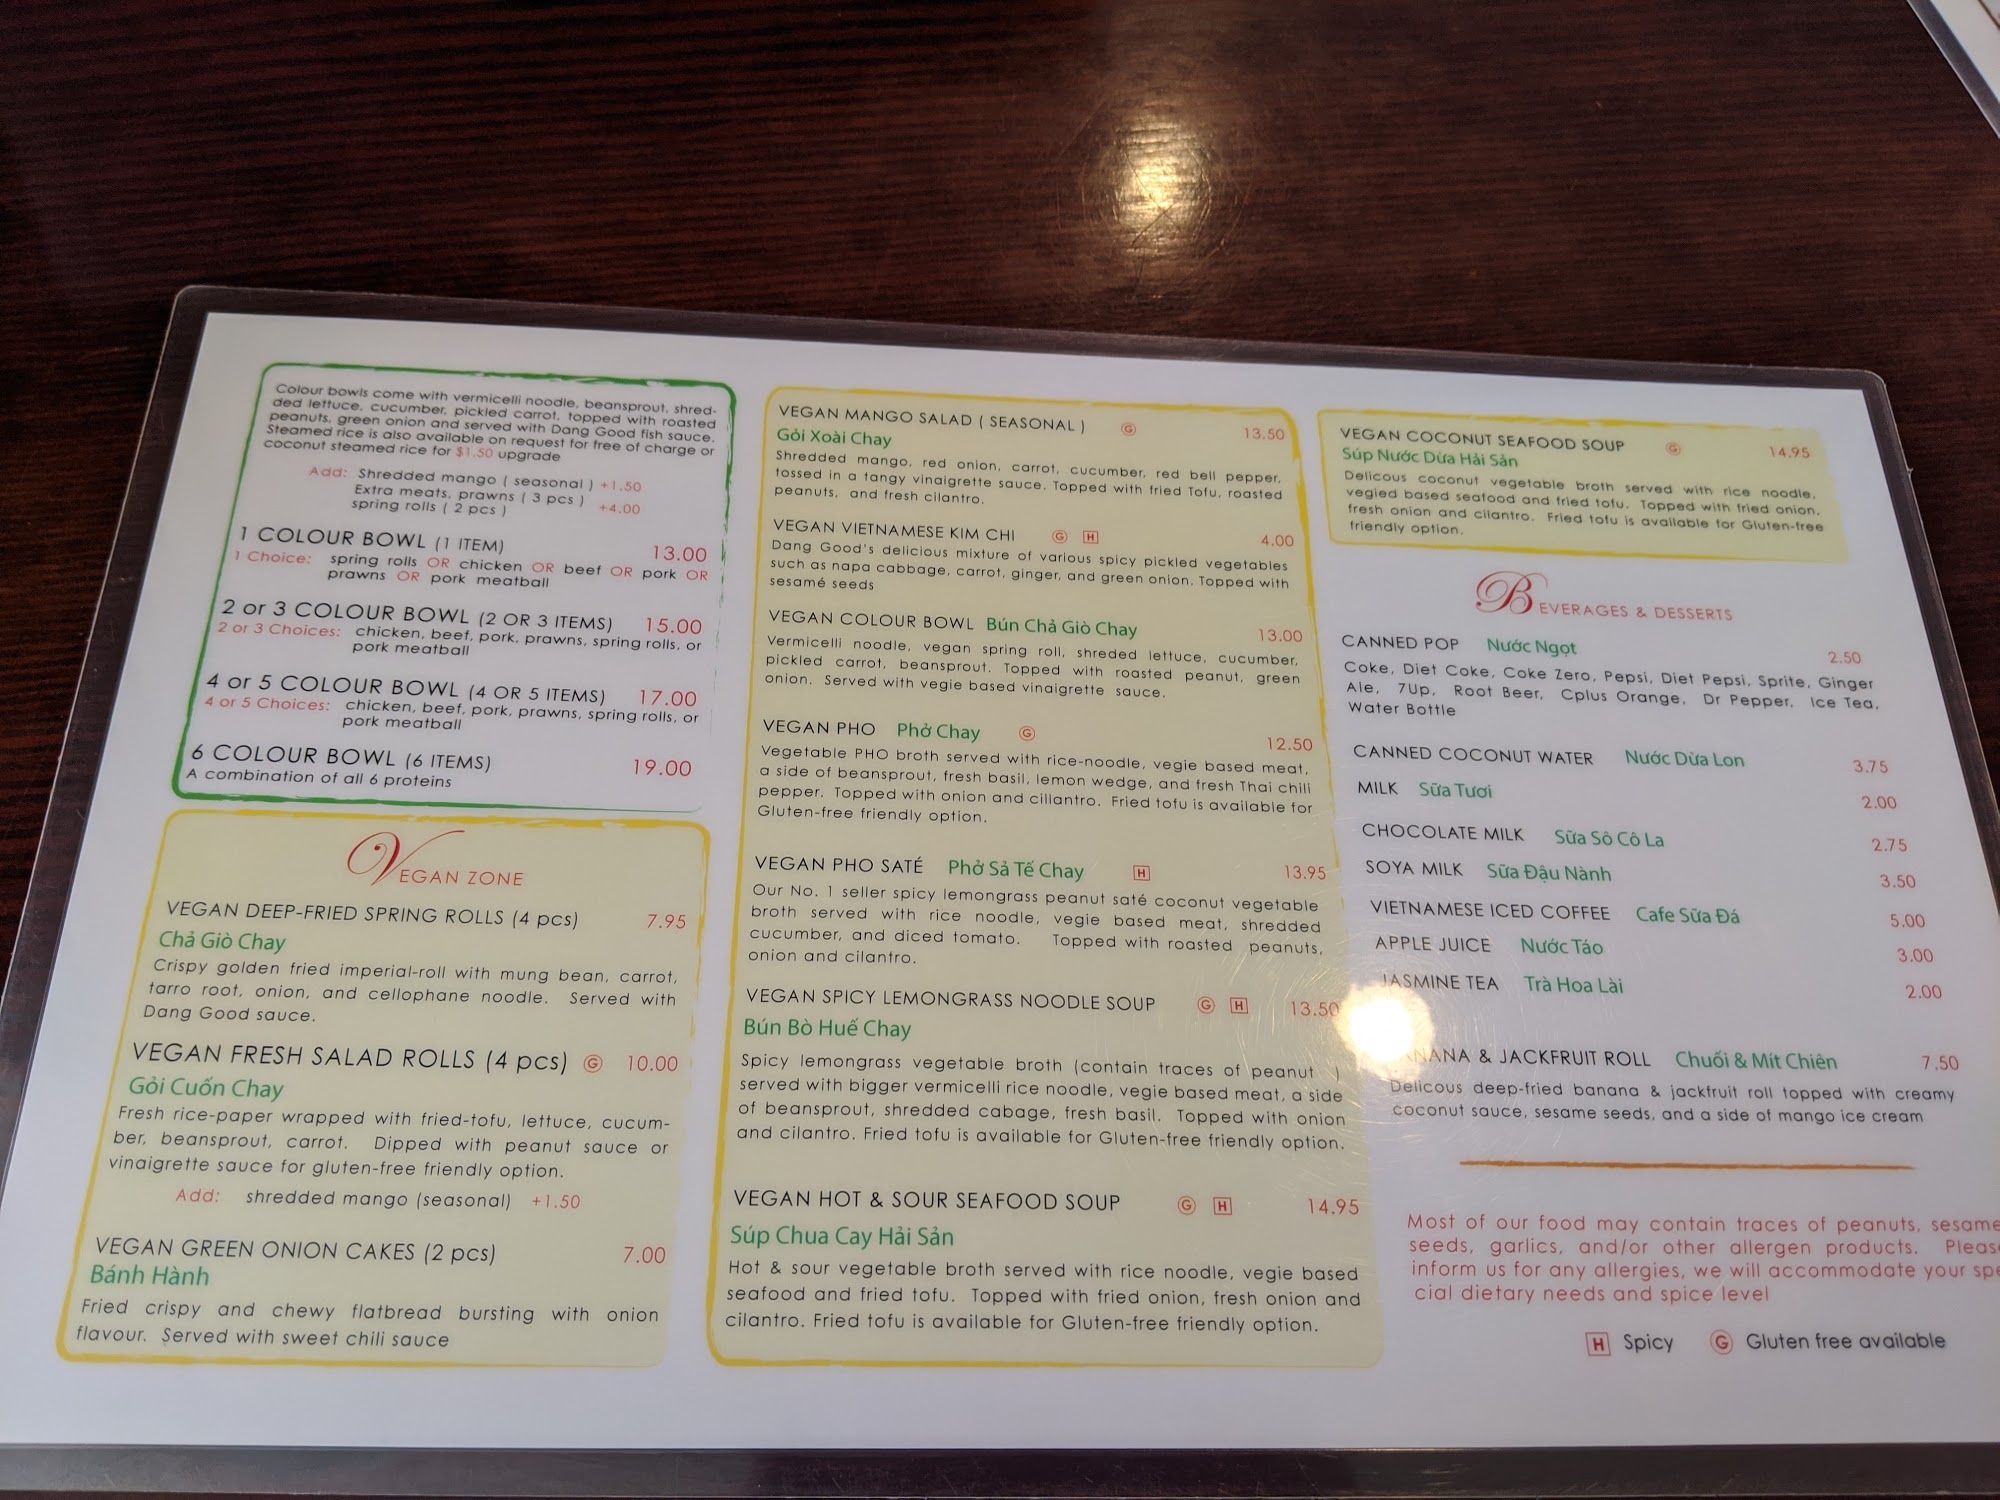 Colour bowls come with vermicelli noodle, beansprout, shred-
ded lettuce, cucumber, pickled carrot, topped with roasted
peanuts, green onion and served with Dang Good fish sauce.
Steamed rice is also available on request for free of charge or
coconut steamed rice for $1.50 upgrade
Add: Shredded mango ( seasonal ) +1.50
Extra meats, prawns ( 3 pcs )
spring rolls ( 2 pcs ) +4.00
1 COLOUR BOWL (1 ITEM) 13.00
1 Choice: spring rolls OR chicken OR beef OR pork OR
prawns OR pork meatball
2 or 3 COLOUR BOWL (2 OR 3 ITEMS) 15.00
2 or 3 Choices: chicken, beef, pork, prawns, spring rolls, or
pork meatball
4 or 5 COLOUR BOWL (4 OR 5 ITEMS) 17.00
4 or 5 Choices: chicken, beef, pork, prawns, spring rolls, or
pork meatball
6 COLOUR BOWL (6 ITEMS) 19.00
A combination of all 6 proteins
VEGAN ZONE
VEGAN DEEP-FRIED SPRING ROLLS (4 pcs) 7.95
Chả Giò Chay
Crispy golden fried imperial-roll with mung bean, carrot,
tarro root, onion, and cellophane noodle. Served with
Dang Good sauce.
VEGAN FRESH SALAD ROLLS (4 pcs) G 10.00
Gỏi Cuốn Chay
Fresh rice-paper wrapped with fried-tofu, lettuce, cucum-
ber, beansprout, carrot. Dipped with peanut sauce or
vinaigrette sauce for gluten-free friendly option.
Add: shredded mango (seasonal) +1.50
VEGAN GREEN ONION CAKES (2 pcs) 7.00
Bánh Hành
Fried crispy and chewy flatbread bursting with onion
flavour. Served with sweet chili sauce
VEGAN MANGO SALAD ( SEASONAL ) G 13.50
Gỏi Xoài Chay
Shredded mango, red onion, carrot, cucumber, red bell pepper,
tossed in a tangy vinaigrette sauce. Topped with fried Tofu, roasted
peanuts, and fresh cilantro.
VEGAN VIETNAMESE KIM CHI G H 4.00
Dang Good's delicious mixture of various spicy pickled vegetables
such as napa cabbage, carrot, ginger, and green onion. Topped with
sesamé seeds
VEGAN COLOUR BOWL Bún Chả Giò Chay 13.00
Vermicelli noodle, vegan spring roll, shreded lettuce, cucumber,
pickled carrot, beansprout. Topped with roasted peanut, green
onion. Served with vegie based vinaigrette sauce.
VEGAN PHO Phở Chay G 12.50
Vegetable PHO broth served with rice-noodle, vegie based meat,
a side of beansprout, fresh basil, lemon wedge, and fresh Thai chili
pepper. Topped with onion and cillantro. Fried tofu is available for
Gluten-free friendly option.
VEGAN PHO SATÉ Phở Sả Tế Chay H 13.95
Our No. 1 seller spicy lemongrass peanut saté coconut vegetable
broth served with rice noodle, vegie based meat, shredded
cucumber, and diced tomato. Topped with roasted peanuts,
onion and cilantro.
VEGAN SPICY LEMONGRASS NOODLE SOUP G H 13.50
Bún Bò Huế Chay
Spicy lemongrass vegetable broth (contain traces of peanut )
served with bigger vermicelli rice noodle, vegie based meat, a side
of beansprout, shredded cabage, fresh basil. Topped with onion
and cilantro. Fried tofu is available for Gluten-free friendly option.
VEGAN HOT & SOUR SEAFOOD SOUP G H 14.95
Súp Chua Cay Hải Sản
Hot & sour vegetable broth served with rice noodle, vegie based
seafood and fried tofu. Topped with fried onion, fresh onion and
cilantro. Fried tofu is available for Gluten-free friendly option.
VEGAN COCONUT SEAFOOD SOUP G 14.95
Súp Nước Dừa Hải Sản
Delicous coconut vegetable broth served with rice noodle,
vegied based seafood and fried tofu. Topped with fried onion,
fresh onion and cilantro. Fried tofu is available for Gluten-free
friendly option.
BEVERAGES & DESSERTS
CANNED POP Nước Ngọt 2.50
Coke, Diet Coke, Coke Zero, Pepsi, Diet Pepsi, Sprite, Ginger
Ale, 7Up, Root Beer, Cplus Orange, Dr Pepper, Ice Tea,
Water Bottle
CANNED COCONUT WATER Nước Dừa Lon 3.75
MILK Sữa Tươi 2.00
CHOCOLATE MILK Sữa Sô Cô La 2.75
SOYA MILK Sữa Đậu Nành 3.50
VIETNAMESE ICED COFFEE Cafe Sữa Đá 5.00
APPLE JUICE Nước Táo 3.00
JASMINE TEA Trà Hoa Lài 2.00
BANANA & JACKFRUIT ROLL Chuối & Mít Chiên 7.50
Delicous deep-fried banana & jackfruit roll topped with creamy
coconut sauce, sesame seeds, and a side of mango ice cream
Most of our food may contain traces of peanuts, sesame
seeds, garlics, and/or other allergen products. Pleas
inform us for any allergies, we will accommodate your spe
cial dietary needs and spice level
H Spicy G Gluten free available